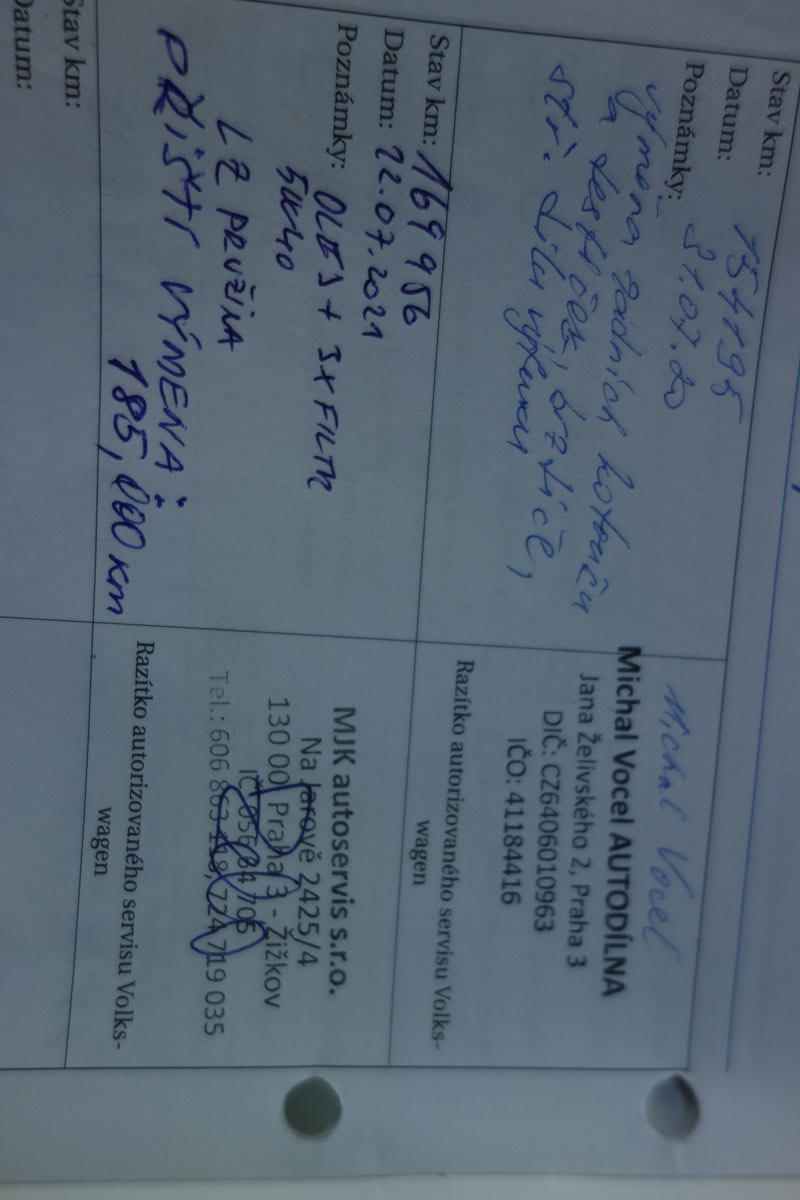 Stav km: 154195
Datum: 31.07.20
Poznámky:
výměna zadních kotoučů
a destiček, brzdiče,
stř. díl výfuku,
Michal Vocel
Michal Vocel AUTODÍLNA
Jana Želivského 2, Praha 3
DIČ: CZ6406010963
IČO: 41184416
Razítko autorizovaného servisu Volks-
wagen
Stav km: 169 956
Datum: 22.07.2021
Poznámky: OLEJ + 3X FILTR
5W40
LZ PRUŽINA
PŘÍŠTÍ VÝMĚNA
185,000 km
MJK autoservis s.r.o.
Na Jarově 2425/4
130 00 Praha 3 - Žižkov
IČ 05604705
Tel.: 606 863 118, 724 719 035
Razítko autorizovaného servisu Volks-
wagen
Stav km:
Datum: